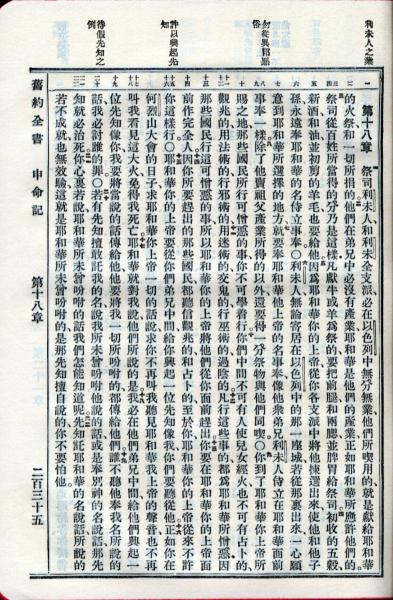 利未人之業
勿從異邦風俗
許以興起先知
待假先知之例
第十八章 祭司利未人和利未全支派必在以色列中無分無業他們所喫用的就是獻給耶和華
的火祭和一切所捐的他們在弟兄中必沒有產業耶和華是他們的產業正如耶和華所應許他們的
祭司從百姓所當得的分乃是這樣凡獻牛或羊為祭的要把前腿和兩腮並脾胃給祭司初收的五穀
新酒和油並初剪的羊毛也要給他因為耶和華你的上帝從你各支派中將他揀選出來使他和他子
孫永遠奉耶和華的名侍立事奉○利未人無論寄居在以色列中的那一座城若從那裏出來一心願
意到耶和華所選擇的地方就要奉耶和華他上帝的名事奉像他衆弟兄利未人侍立在耶和華面前
事奉一樣除了他賣祖父產業所得的以外還要得一分祭物與他們同喫○你到了耶和華你上帝所
賜之地那些國民所行可憎惡的事你不可學着行你們中間不可有人使兒女經火也不可有占卜的
觀兆的用法術的行邪術的用迷術的交鬼的行巫術的過陰的凡行這些事的都為耶和華所憎惡因
那些國民行這可憎惡的事所以耶和華你的上帝將他們從你面前趕出你要在耶和華你的上帝面
前作完全人因你所要趕出的那些國民都聽信觀兆的和占卜的至於你耶和華你的上帝從來不許
你這樣行○耶和華你的上帝要從你們弟兄中間給你興起一位先知像我你們要聽從他正如你在
何烈山大會的日子求耶和華你上帝一切的話說求你不再叫我聽見耶和華我上帝的聲音也不再
叫我看見這大火免得我死亡耶和華就對我說他們所說的是我必在他們弟兄中間給他們興起一
位先知像你我要將當說的話傳給他他要將我一切所吩咐的都傳給他們誰不聽他奉我名所說的
話我必討誰的罪○若有先知擅敢託我的名說我所未曾吩咐他說的話或是奉別神的名說話那先
知就必治死你心裏若說耶和華所未曾吩咐的話我們怎能知道呢先知託耶和華的名說話所說的
若不成就也無效驗這就是耶和華所未曾吩咐的是那先知擅自說的你不要怕他
舊約全書 申命記 第十八章 二百三十五